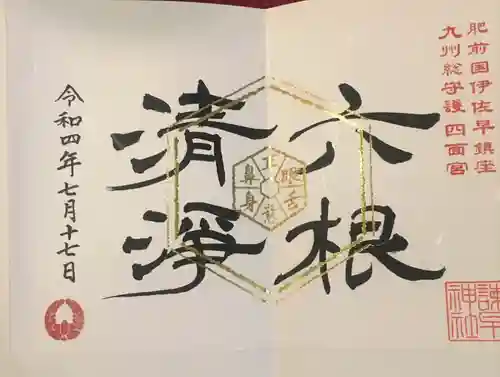 肥前国伊佐早鎮座
九州総守護四面宮
六根
清浄
眼
舌
身
鼻
令和四年七月十七日
諫早
神社